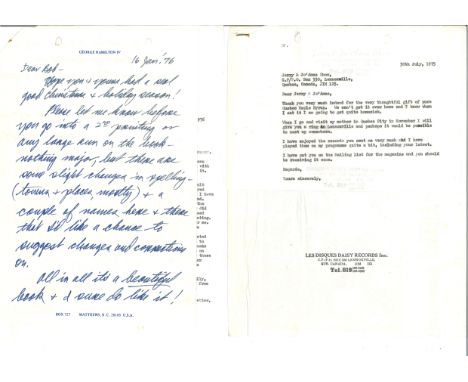 GEORGE HAMILTON IV
16 Jan '76
Dear
Hope you & yours had a real
good Christmas & holiday season!
Please let me know before
you go into a 2nd printing or
any large run on the book -
nothing major, but there are
some slight changes in spelling -
(towns & places, mostly) & a
couple of names here & there
that I'd like a chance to
suggest changes and corrections
on.
All in all it's a beautiful
book & I sure do like it!
BOX 727 MATTHEWS, N.C. 28105 U.S.A.
30th July, 1975
Jerry & Jo'Anne
Box 330, Lennoxville,
Quebec, Canada,
Dear Jerry & Jo'Anne,
Thank you very much indeed for the very thoughtful gift of pure
Quebec Maple Syrup. We can't get it over here and I know when
I eat it I am going to get quite homesick.
When I go and visit my mother in Quebec City in November I will
give you a ring in Lennoxville and perhaps it would be possible
to meet up somewhere.
I have enjoyed the records you sent me very much and I have
played them on my programme quite a bit, including your latest.
I have put you on the Mailing list for the magazine and you should
be receiving it soon.
Regards,
Yours sincerely,
LES DISQUES DAISY RECORDS Inc.
LENNOXVILLE
CANADA
Tel. 819